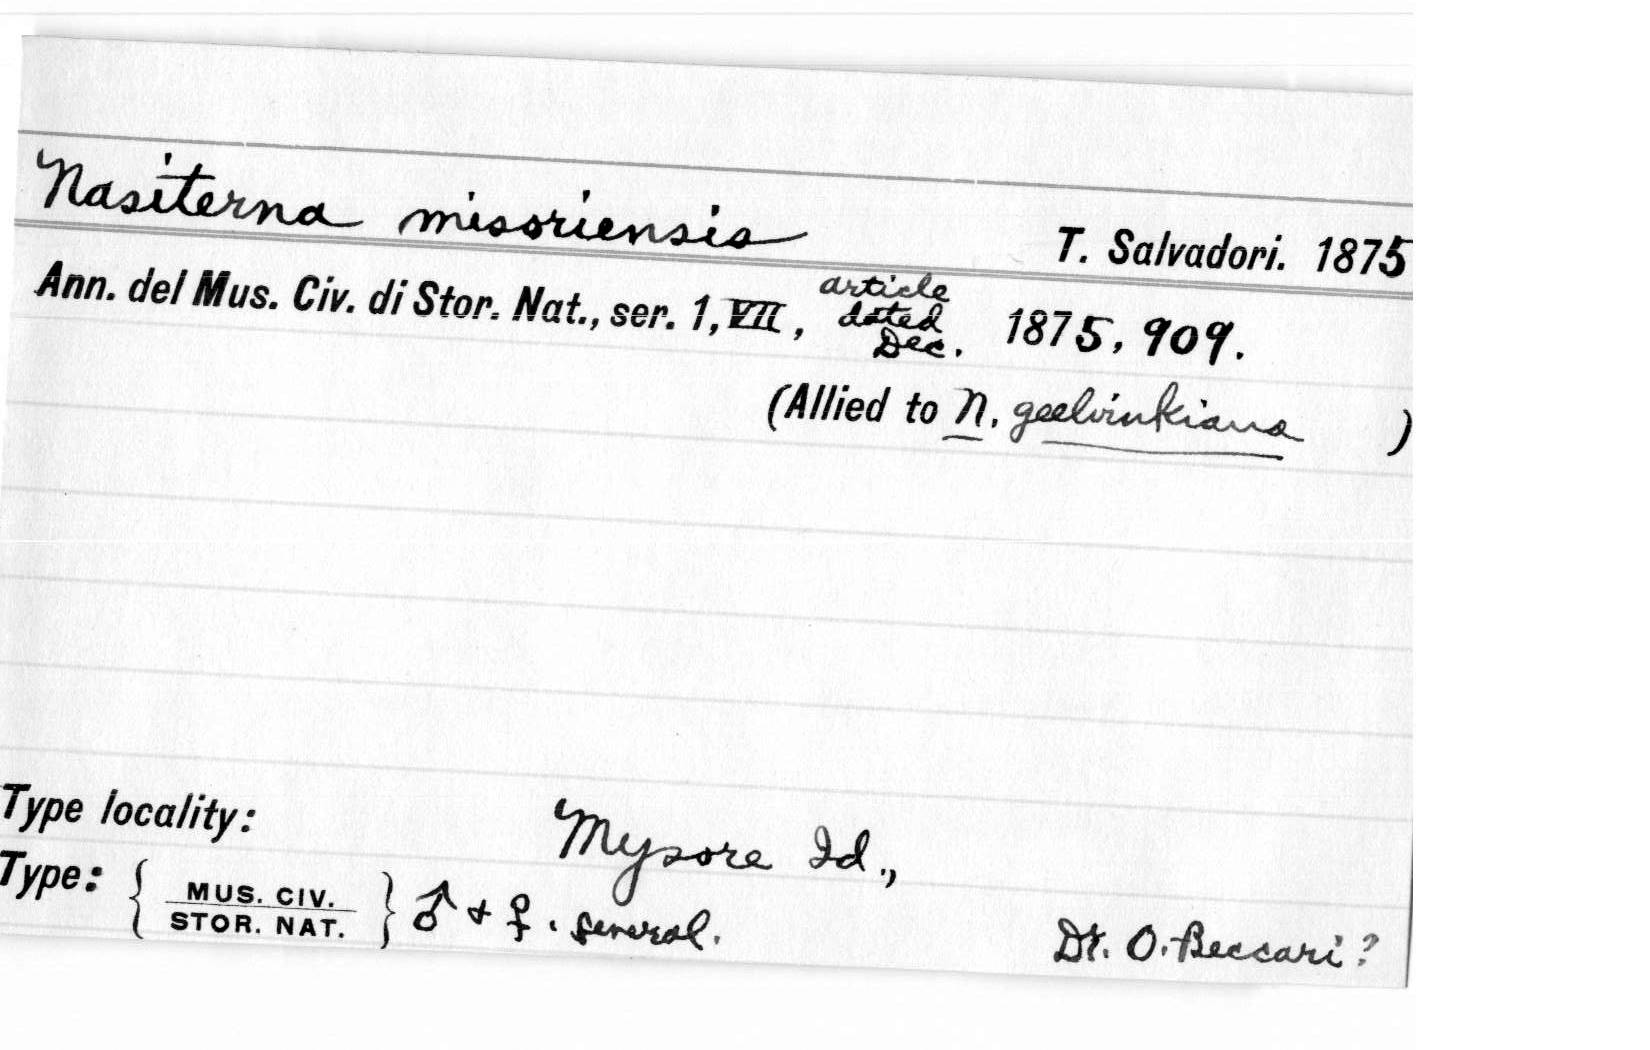 Nasiterna misoriensis T. Salvadori. 1875
Ann. del Mus. Civ. di Stor. Nat., ser. 1, VII, article dated Dec. 1875, 909.
(Allied to N. geelvinkiana )
Type locality: Mysore Id.,
Type: { MUS. CIV. STOR. NAT. } ♂ + ♀. several. Dr. O. Beccari?